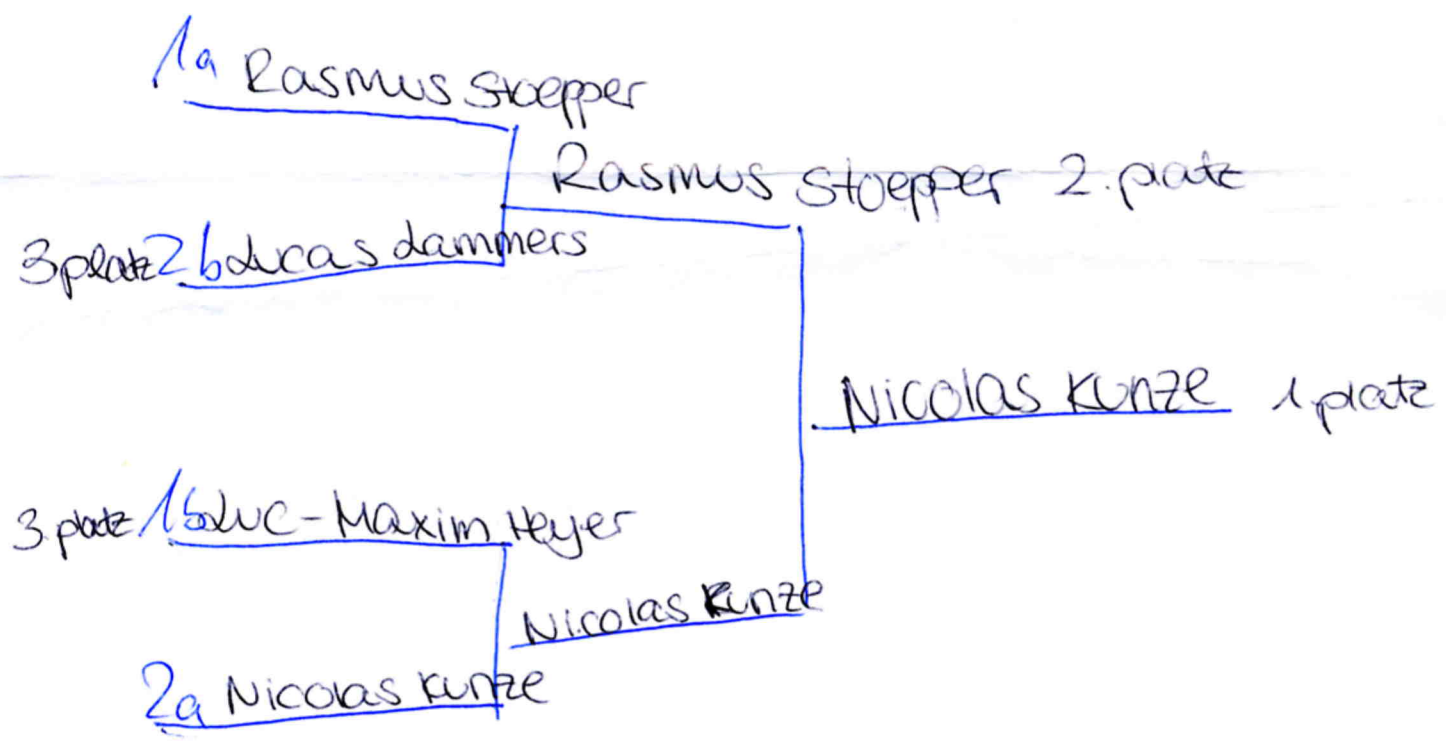 1a Rasmus Stoepper
Rasmus Stoepper 2. platz
3platz 2b Lucas dammers
Nicolas Kunze 1. platz
3. platz 1b Luc-Maxim Heyer
Nicolas Kunze
2a Nicolas Kunze